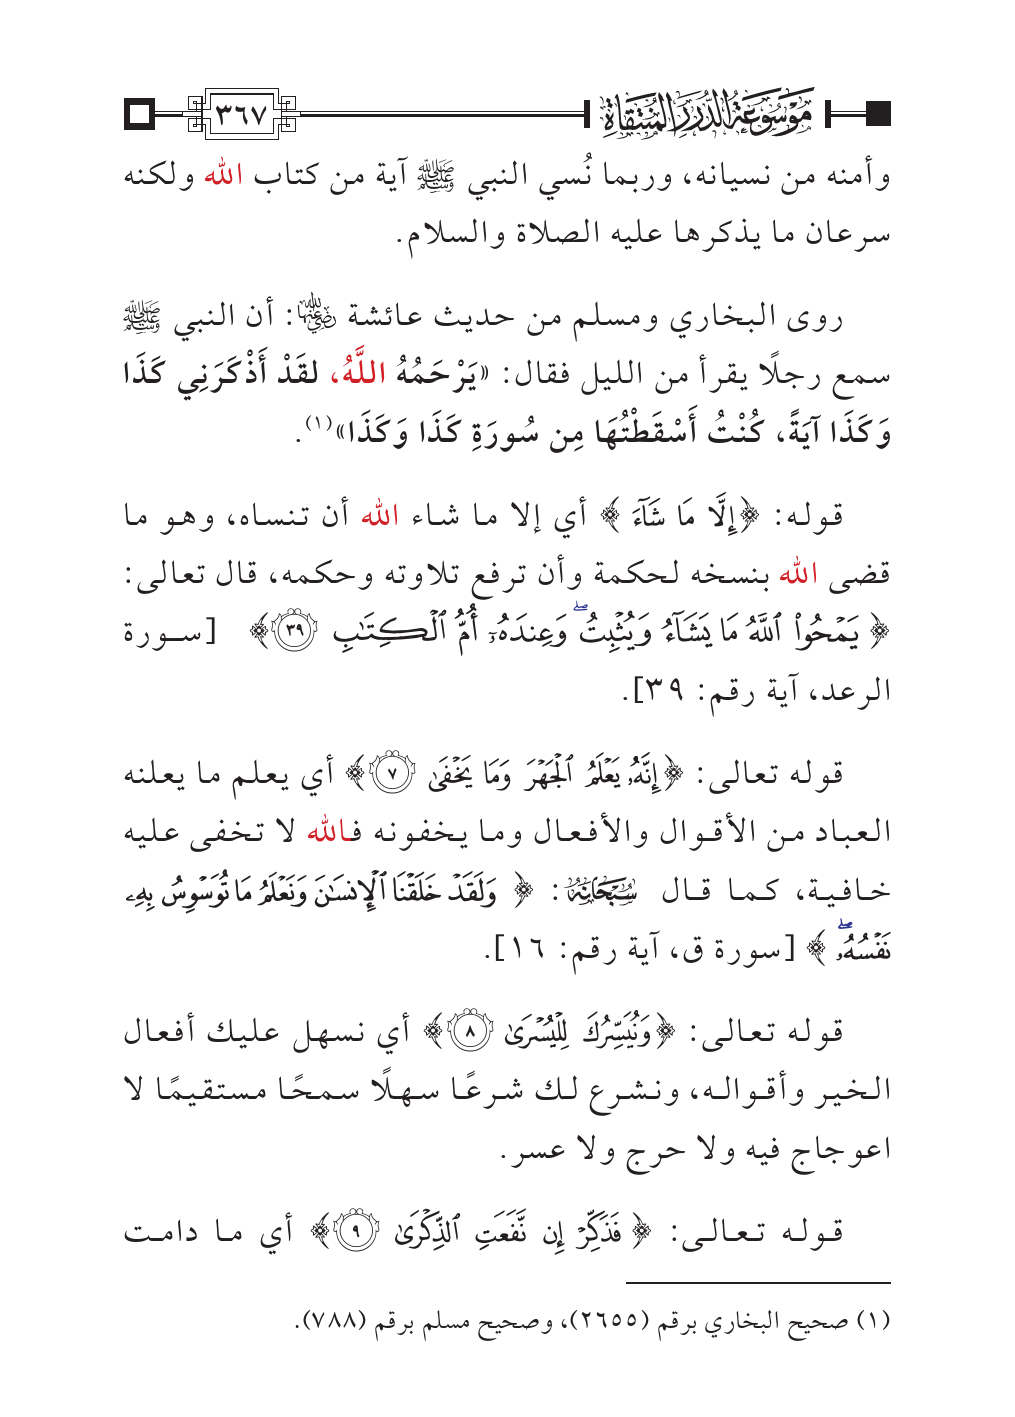 موسوعة الدرر المنتقاة
٣٦٧
وأمنه من نسيانه، وربما نُسي النبي ﷺ آية من كتاب الله ولكنه
سرعان ما يذكرها عليه الصلاة والسلام.
روى البخاري ومسلم من حديث عائشة رضي الله عنها: أن النبي ﷺ
سمع رجلًا يقرأ من الليل فقال: «يَرْحَمُهُ اللَّهُ، لقَدْ أَذْكَرَنِي كَذَا
وَكَذَا آيَةً، كُنْتُ أَسْقَطْتُهَا مِن سُورَةِ كَذَا وَكَذَا»(١).
قوله: ﴿إِلَّا مَا شَآءَ﴾ أي إلا ما شاء الله أن تنساه، وهو ما
قضى الله بنسخه لحكمة وأن ترفع تلاوته وحكمه، قال تعالى:
﴿يَمۡحُواْ ٱللَّهُ مَا يَشَآءُ وَيُثۡبِتُۖ وَعِندَهُۥٓ أُمُّ ٱلۡكِتَٰبِ ٣٩﴾ [سورة
الرعد، آية رقم: ٣٩].
قوله تعالى: ﴿إِنَّهُۥ يَعۡلَمُ ٱلۡجَهۡرَ وَمَا يَخۡفَىٰ ٧﴾ أي يعلم ما يعلنه
العباد من الأقوال والأفعال وما يخفونه فالله لا تخفى عليه
خافية، كما قال سُبْحَانَهُ: ﴿وَلَقَدۡ خَلَقۡنَا ٱلۡإِنسَٰنَ وَنَعۡلَمُ مَا تُوَسۡوِسُ بِهِۦ
نَفۡسُهُۥۖ﴾ [سورة ق، آية رقم: ١٦].
قوله تعالى: ﴿وَنُيَسِّرُكَ لِلۡيُسۡرَىٰ ٨﴾ أي نسهل عليك أفعال
الخير وأقواله، ونشرع لك شرعًا سهلًا سمحًا مستقيمًا لا
اعوجاج فيه ولا حرج ولا عسر.
قوله تعالى: ﴿فَذَكِّرۡ إِن نَّفَعَتِ ٱلذِّكۡرَىٰ ٩﴾ أي ما دامت
(١) صحيح البخاري برقم (٢٦٥٥)، وصحيح مسلم برقم (٧٨٨).